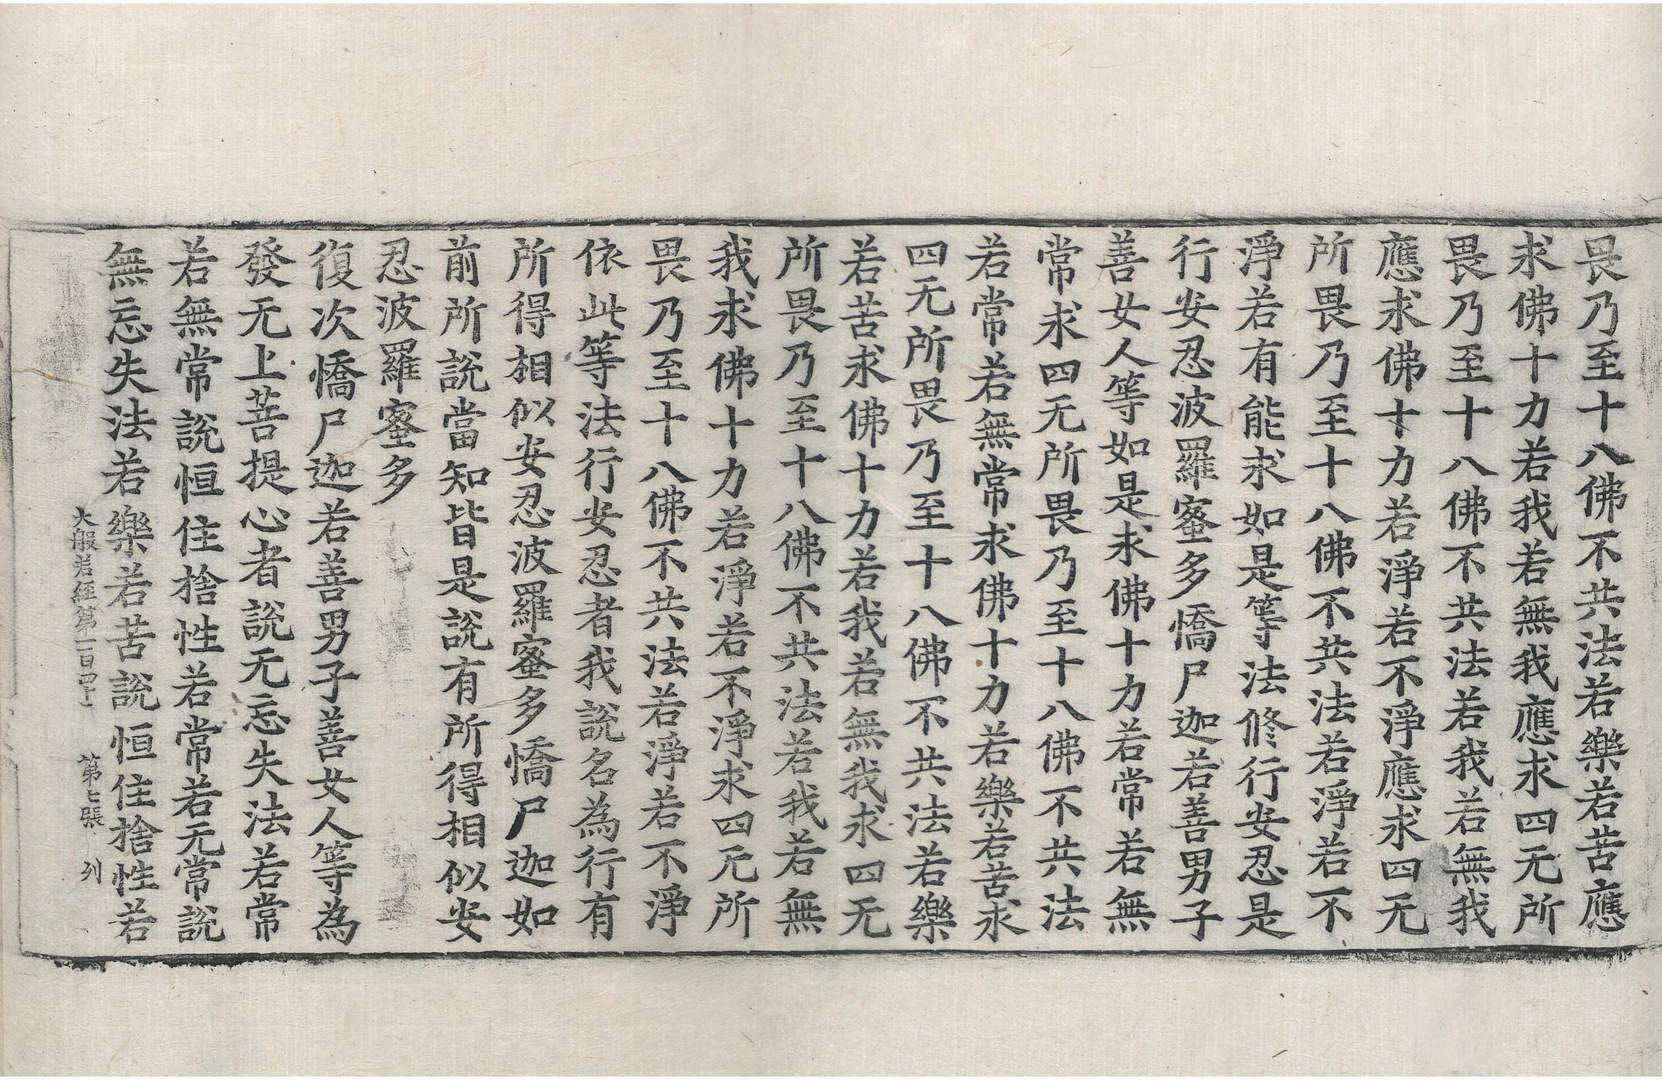 畏乃至十八佛不共法若樂若苦應
求佛十力若我若無我應求四无所
畏乃至十八佛不共法若我若無我
應求佛十力若淨若不淨應求四无
所畏乃至十八佛不共法若淨若不
淨若有能求如是等法修行安忍是
行安忍波羅蜜多憍尸迦若善男子
善女人等如是求佛十力若常若無
常求四无所畏乃至十八佛不共法
若常若無常求佛十力若樂若苦求
四无所畏乃至十八佛不共法若樂
若苦求佛十力若我若無我求四无
所畏乃至十八佛不共法若我若無
我求佛十力若淨若不淨求四无所
畏乃至十八佛不共法若淨若不淨
依此等法行安忍者我說名為行有
所得相似安忍波羅蜜多憍尸迦如
前所說當知皆是說有所得相似安
忍波羅蜜多
復次憍尸迦若善男子善女人等為
發无上菩提心者說无忘失法若常
若無常說恒住捨性若常若无常說
無忘失法若樂若苦說恒住捨性若
大般若經第一百四十 第七張 列